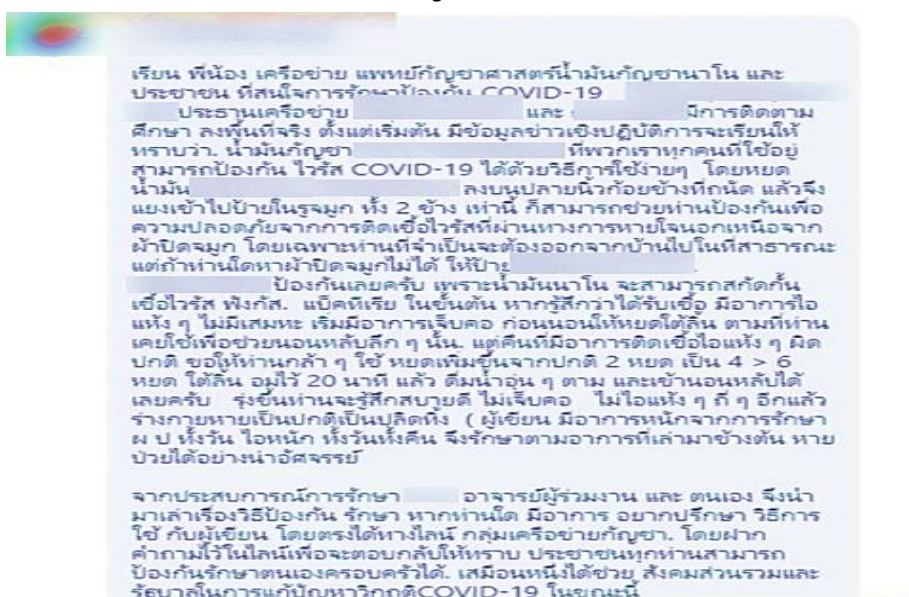 เรียน พี่น้อง เครือข่าย แพทย์กัญชาศาสตร์น้ำมันกัญชานาโน และ
ประชาชน ที่สนใจการรักษาป้องกัน COVID-19
ประธานเครือข่าย และ มีการติดตาม
ศึกษา ลงพื้นที่จริง ตั้งแต่เริ่มต้น มีข้อมูลข่าวเชิงปฏิบัติการจะเรียนให้
ทราบว่า. น้ำมันกัญชา ที่พวกเราทุกคนที่ใช้อยู่
สามารถป้องกัน ไวรัส COVID-19 ได้ด้วยวิธีการใช้ง่ายๆ โดยหยด
น้ำมัน ลงบนปลายนิ้วก้อยข้างที่ถนัด แล้วจึง
แยงเข้าไปป้ายในรูจมูก ทั้ง 2 ข้าง เท่านี้ ก็สามารถช่วยท่านป้องกันเพื่อ
ความปลอดภัยจากการติดเชื้อไวรัสที่ผ่านทางการหายใจนอกเหนือจาก
ผ้าปิดจมูก โดยเฉพาะท่านที่จำเป็นจะต้องออกจากบ้านไปในที่สาธารณะ
แต่ถ้าท่านใดหาผ้าปิดจมูกไม่ได้ ให้ป้าย
ป้องกันเลยครับ เพราะน้ำมันนาโน จะสามารถสกัดกั้น
เชื้อไวรัส ฟังกัส. แบ็คทีเรีย ในขั้นต้น หากรู้สึกว่าได้รับเชื้อ มีอาการไอ
แห้ง ๆ ไม่มีเสมหะ เริ่มมีอาการเจ็บคอ ก่อนนอนให้หยดใต้ลิ้น ตามที่ท่าน
เคยใช้เพื่อช่วยนอนหลับลึก ๆ นั้น. แต่คืนที่มีอาการติดเชื้อไอแห้ง ๆ ผิด
ปกติ ขอให้ท่านกล้า ๆ ใช้ หยดเพิ่มขึ้นจากปกติ 2 หยด เป็น 4 > 6
หยด ใต้ลิ้น อมไว้ 20 นาที แล้ว ดื่มน้ำอุ่น ๆ ตาม และเข้านอนหลับได้
เลยครับ รุ่งขึ้นท่านจะรู้สึกสบายดี ไม่เจ็บคอ ไม่ไอแห้ง ๆ ถี่ ๆ อีกแล้ว
ร่างกายหายเป็นปกติเป็นปลิดทิ้ง ( ผู้เขียน มีอาการหนักจากการรักษา
ผ ป ทั้งวัน ไอหนัก ทั้งวันทั้งคืน จึงรักษาตามอาการที่เล่ามาข้างต้น หาย
ป่วยได้อย่างน่าอัศจรรย์
จากประสบการณ์การรักษา อาจารย์ผู้ร่วมงาน และ ตนเอง จึงนำ
มาเล่าเรื่องวิธีป้องกัน รักษา หากท่านใด มีอาการ อยากปรึกษา วิธีการ
ใช้ กับผู้เขียน โดยตรงได้ทางไลน์ กลุ่มเครือข่ายกัญชา. โดยฝาก
คำถามไว้ในไลน์เพื่อจะตอบกลับให้ทราบ ประชาชนทุกท่านสามารถ
ป้องกันรักษาตนเองครอบครัวได้. เสมือนหนึ่งได้ช่วย สังคมส่วนรวมและ
รัฐบาลในการแก้ปัญหาวิกฤติCOVID-19 ในขณะนี้